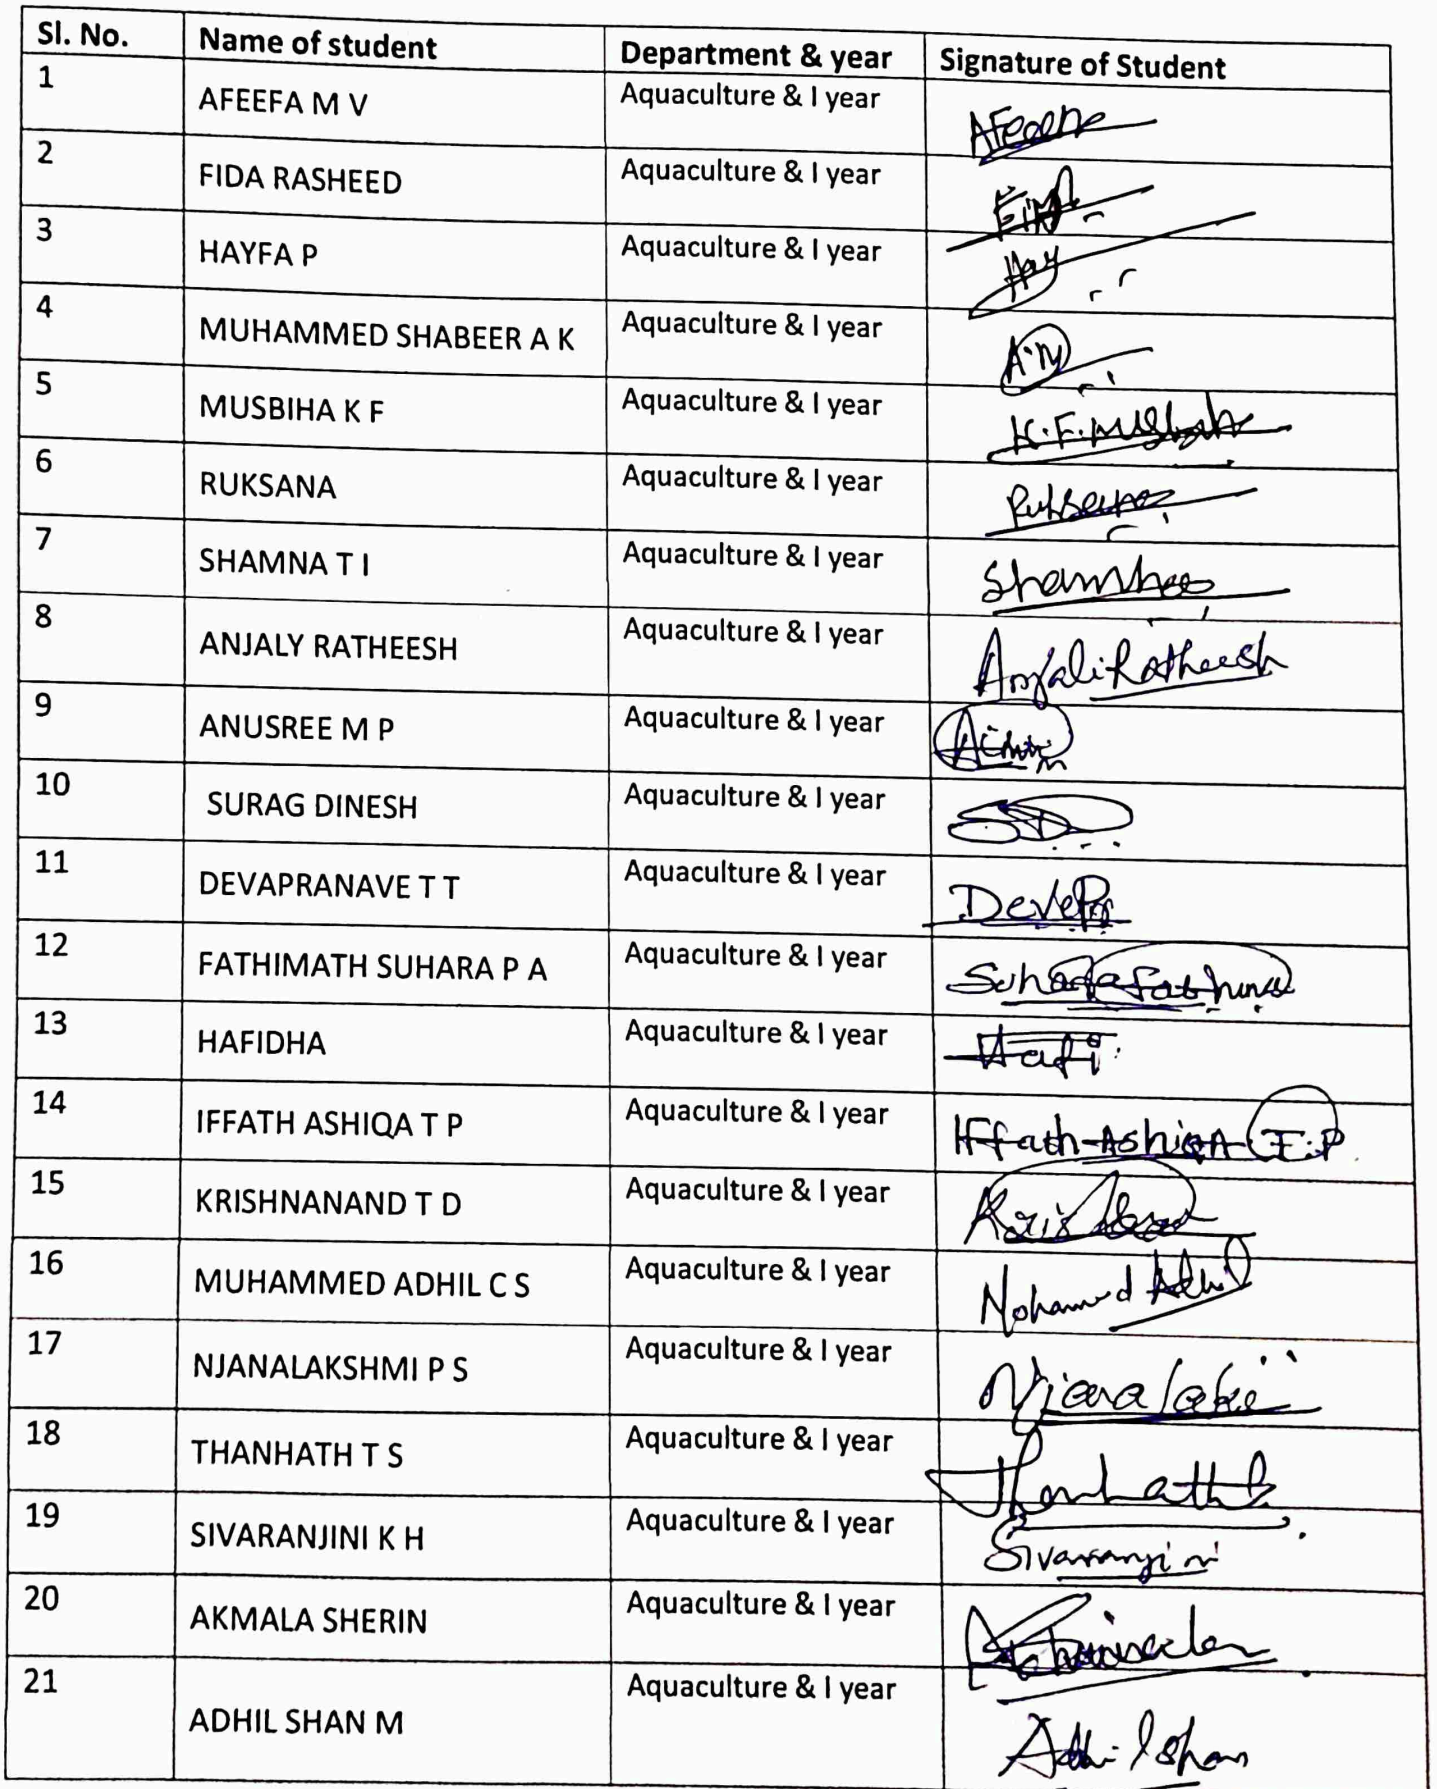 Sl. No. Name of student Department & year Signature of Student
1 AFEEFA M V Aquaculture & I year
2 FIDA RASHEED Aquaculture & I year
3 HAYFA P Aquaculture & I year Hay
4 MUHAMMED SHABEER A K Aquaculture & I year
5 MUSBIHA K F Aquaculture & I year K.F.
6 RUKSANA Aquaculture & I year
7 SHAMNA T I Aquaculture & I year
8 ANJALY RATHEESH Aquaculture & I year Anjali Ratheesh
9 ANUSREE M P Aquaculture & I year
10 SURAG DINESH Aquaculture & I year SD
11 DEVAPRANAVE T T Aquaculture & I year
12 FATHIMATH SUHARA P A Aquaculture & I year Suhara
13 HAFIDHA Aquaculture & I year Hafi
14 IFFATH ASHIQA T P Aquaculture & I year Iffath Ashiqa T.P
15 KRISHNANAND T D Aquaculture & I year
16 MUHAMMED ADHIL C S Aquaculture & I year Mohamed Adhil
17 NJANALAKSHMI P S Aquaculture & I year
18 THANHATH T S Aquaculture & I year Thanhath
19 SIVARANJINI K H Aquaculture & I year Sivaranjini
20 AKMALA SHERIN Aquaculture & I year
21 ADHIL SHAN M Aquaculture & I year Adhil Shan